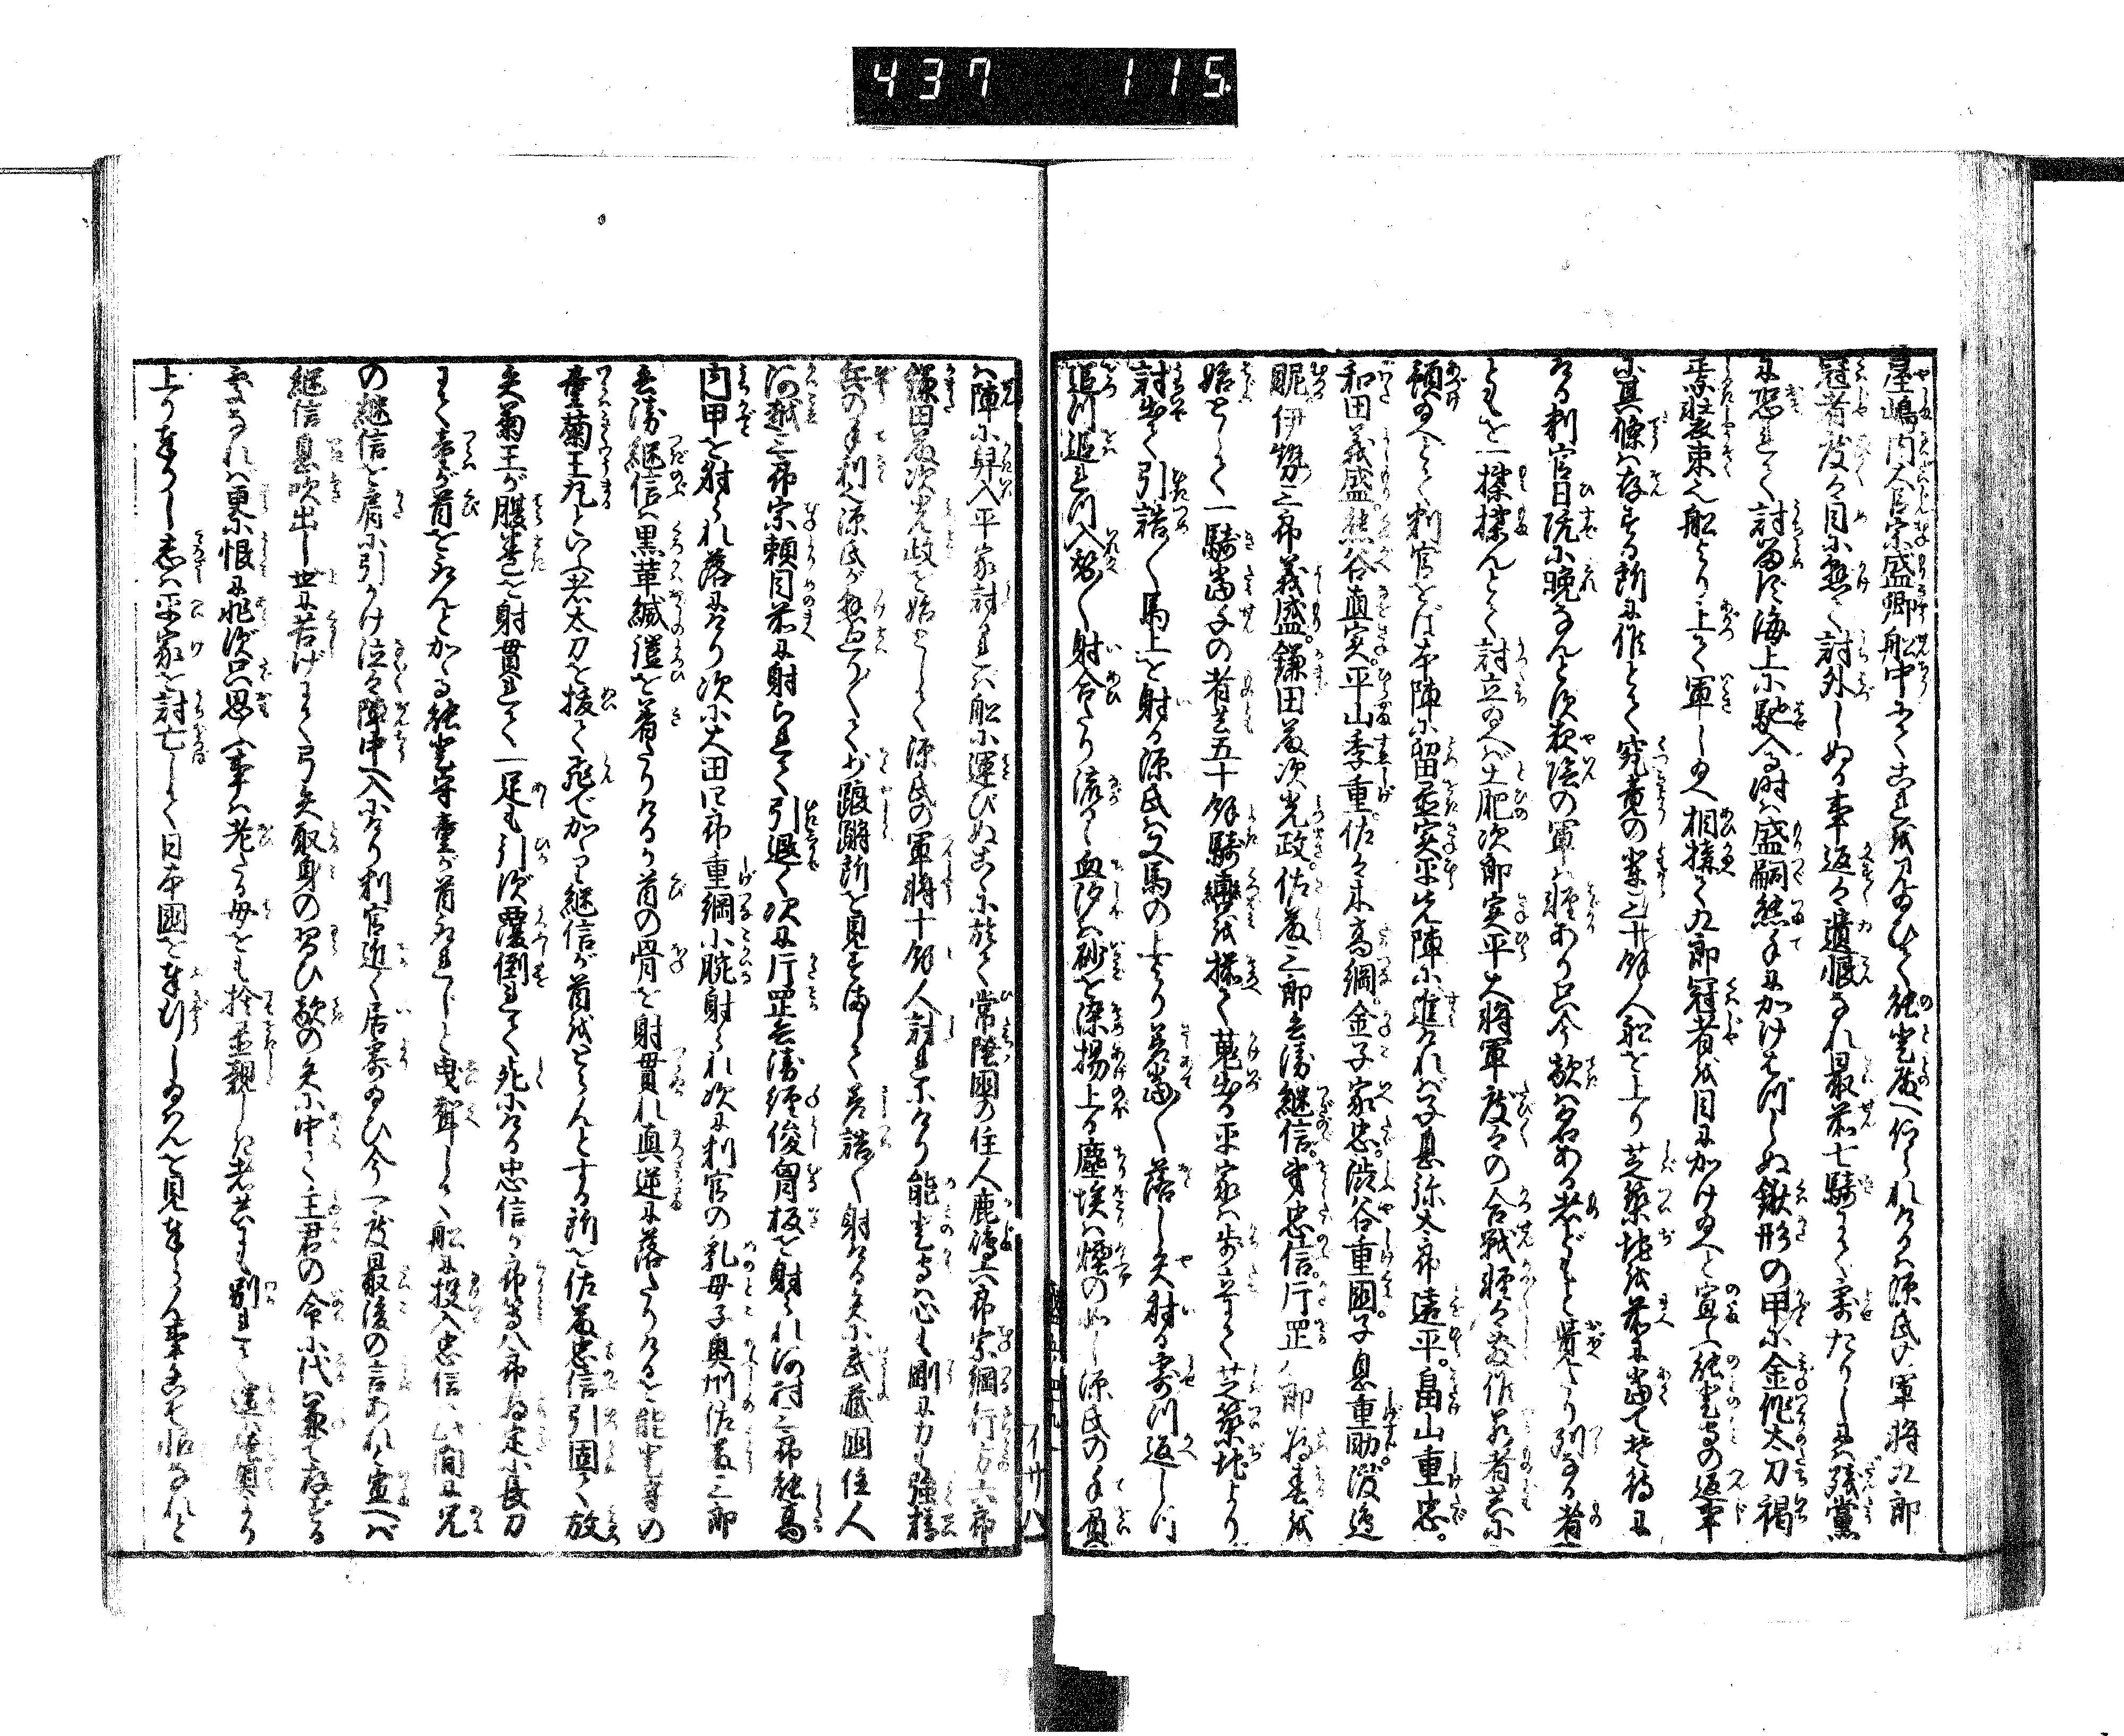 437 115
屋嶋内大臣宗盛卿船中にてこれを見給ひて能登殿へ仰られけるは源氏の軍将九郎
冠者度々目に懸て討外しぬる事返々遺恨なれ最前七騎にて寄たりしには残党
に恐れて討留ず海上に馳入る時は盛嗣熊手にかけはづしぬ鍬形の甲に金作太刀褐
装束也船より上て軍し給へ相構て九郎冠者を目にかけ給へと宣へ能登守の返事
に其條は存ずる所に候とて究竟の輩三十余人船を上り芝築地を前に当て共待に
ける判官日既に晩なんとす夜陰の軍は憚あり只今敵は名ある者どもと覚えたり列なる者
ともを一揉揉んとて討立給へば土肥次郎実平大将軍度々の合戦軽々敷候若者共に
預給へとて判官をば本陣に留置実平先陣に進ければ子息弥太郎遠平。畠山重忠。
和田義盛。熊谷直実。平山季重。佐々木高綱。金子家忠。渋谷重国。子息重助。渡邉
眤伊勢三郎義盛。鎌田藤次光政。佐藤三郎兵衛継信。弟忠信。片岡八郎為春を
始として一騎当千の者共五十余騎轡を揃て蒐出る平家は歩立にて芝築地より
討出て引詰〳〵馬上を射る源氏は又馬の上より差当〳〵落し矢射る寄つ返しつ
追つ追れつ入替〳〵射合たり流るゝ血汐は砂を染揚上る塵埃は煙の如し源氏の手負
は陣に舁入平家討るれば船に運びぬこゝに於て常陸国の住人鹿嶋六郎宗綱行方六郎
鎌田藤次光政を始として源氏の軍将十余人討れにけり能登守は心も剛に力も強精
兵の手利源氏が懸廻り〳〵て少踉蹌所を見すまして差詰〳〵射ける矢に武蔵国住人
河越三郎宗頼目前に射られて引退く次に片岡兵衛経俊胸板を射られ河村三郎能高
内甲を射られ落にけり次に大田四郎重綱小腕射られ次に判官の乳母子奥州佐藤三郎
兵衛継信は黒革縅鎧を着たりけるが首の骨を射貫れ真逆に落たりけるを能登守の
童菊王丸といふ者太刀を抜て飛でかゝり継信が首をとらんとする所を佐藤忠信引固て放
矢菊王が腹巻を射貫れて一足も引ず覆倒れて死にける忠信が郎等八郎為定小長刀
にて童が首をとらんとかゝる能登守童が首とられじと曳声して船に投入忠信此間に兄
の継信を肩に引かけ泣々陣中へ入にけり判官近く居寄給ひ今一度最後の言あれと宣へば
継信息吹出し世に苦げにて弓矢取身の習ひ敵の矢に中て主君の命に代は兼て存ずる
処なれば更に恨に非ず只思ふ事は老たる母をも捨置親しき者共にも別れて遥々奥より
上り奉りし志は平家を討亡して日本国を奉行し給はんを見奉らん事こそ
イサハ